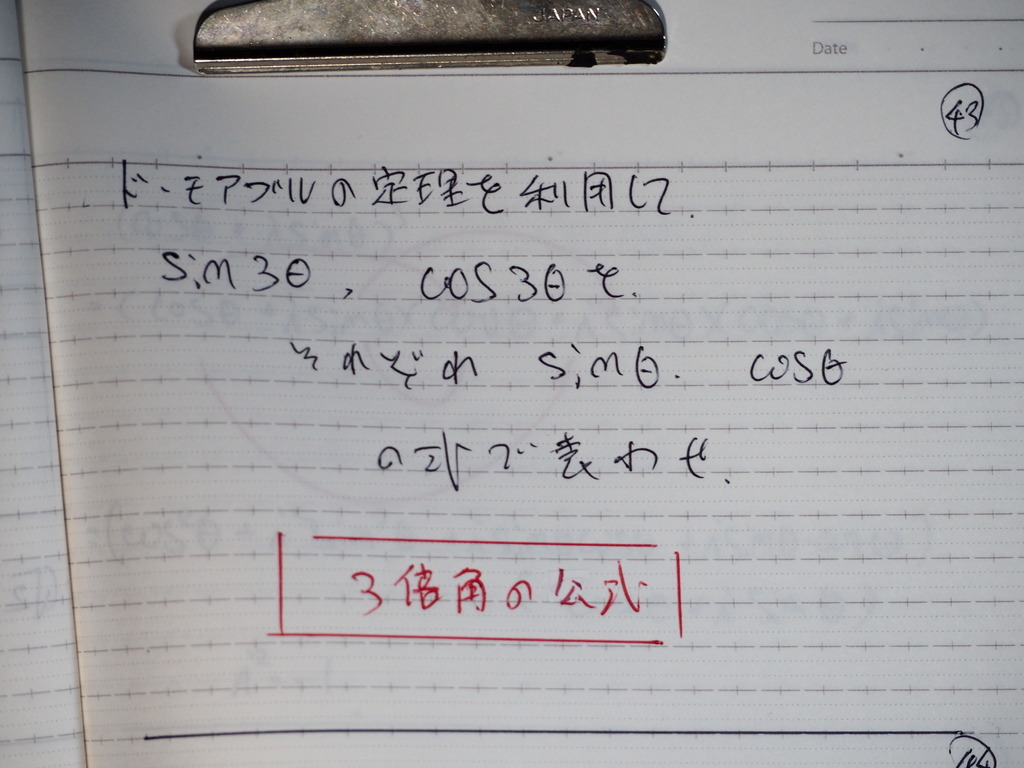 JAPAN
Date
43
ド・モアブルの定理を利用して.
sin3θ, cos3θを.
それぞれ sinθ. cosθ
の式で表わせ.
3倍角の公式